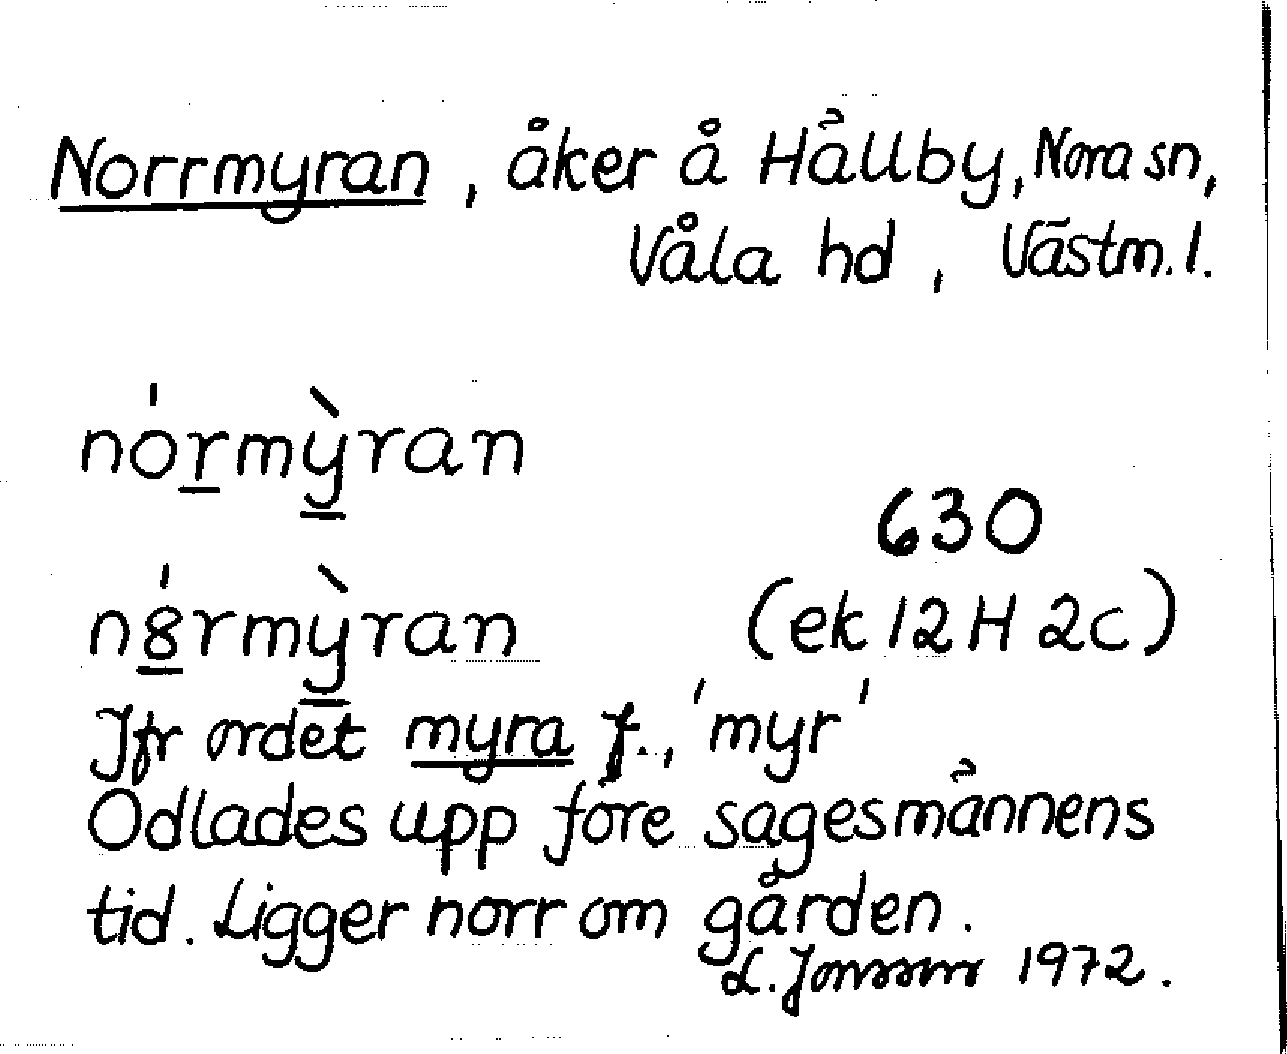 Norrmyran, åker å Hållby, Nora sn,
Våla hd, Västm. l.
nór̲mỳ̲ran
630
n8̲́rmỳ̲ran
(ek 12H 2c)
Jfr ordet myra f., 'myr'
Odlades upp före sagesmännens
tid. Ligger norr om gården.
L. Jonsson 1972.